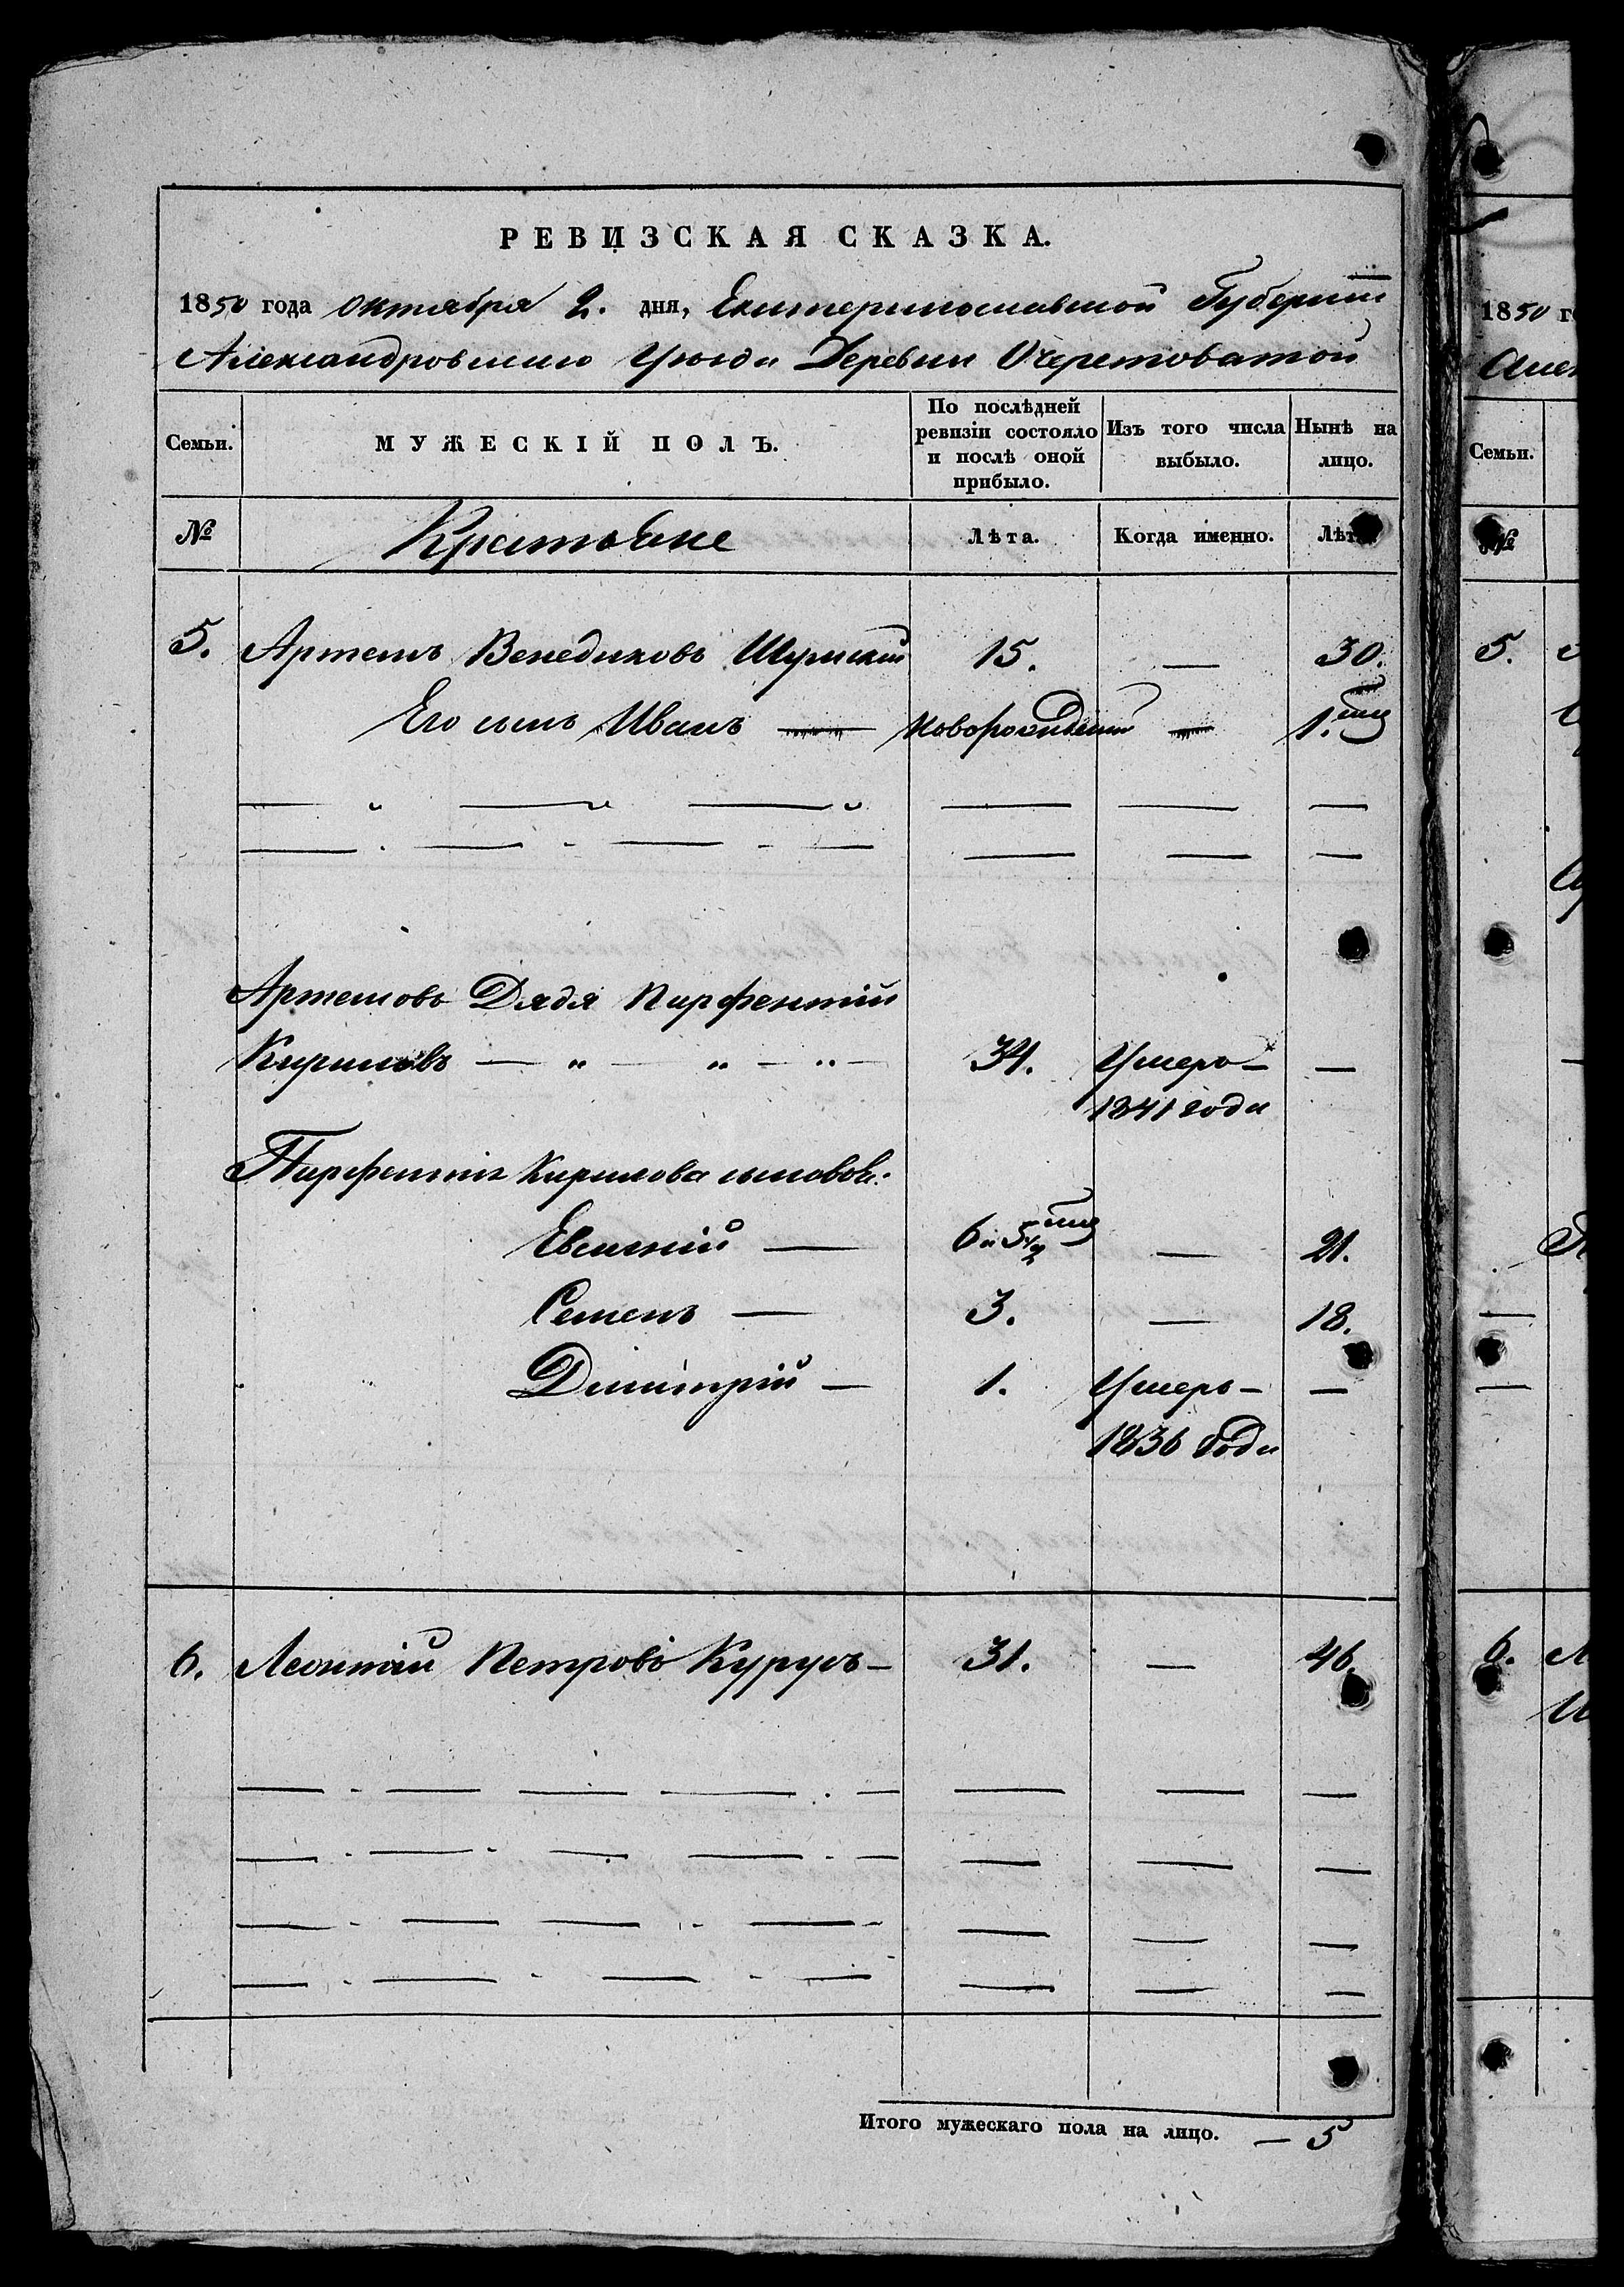 РЕВИЗСКАЯ СКАЗКА.
1850 года Октября 2. дня, Екатеринославской Губернии
Александровскаго Уѣзда Деревни Очеретоватой
Семьи. МУЖЕСКІЙ ПОЛЪ. По послѣдней ревизіи состояло и послѣ оной прибыло. Изъ того числа выбыло. Нынѣ на лицо.
№ Крестьяне Лѣта. Когда именно. Лѣта
5. Артемъ Венедиковъ Шумскій 15. — 30.
Его сынъ Иванъ — новорожденъ — 1.
Артемовъ Дядя Парфентій
Кириловъ — 34. Умеръ —
1841 года
Парфентія Кирилова сыновья:
Евсигній — 6 и 5 1/2 — 21.
Семенъ — 3. — 18.
Димитрій — 1. Умеръ — —
1836 года
6. Леонтій Петровъ Курусъ — 31. — 46.
Итого мужескаго пола на лицо. — 5
1850 г
Алек
Семьи.
№
5.
6.